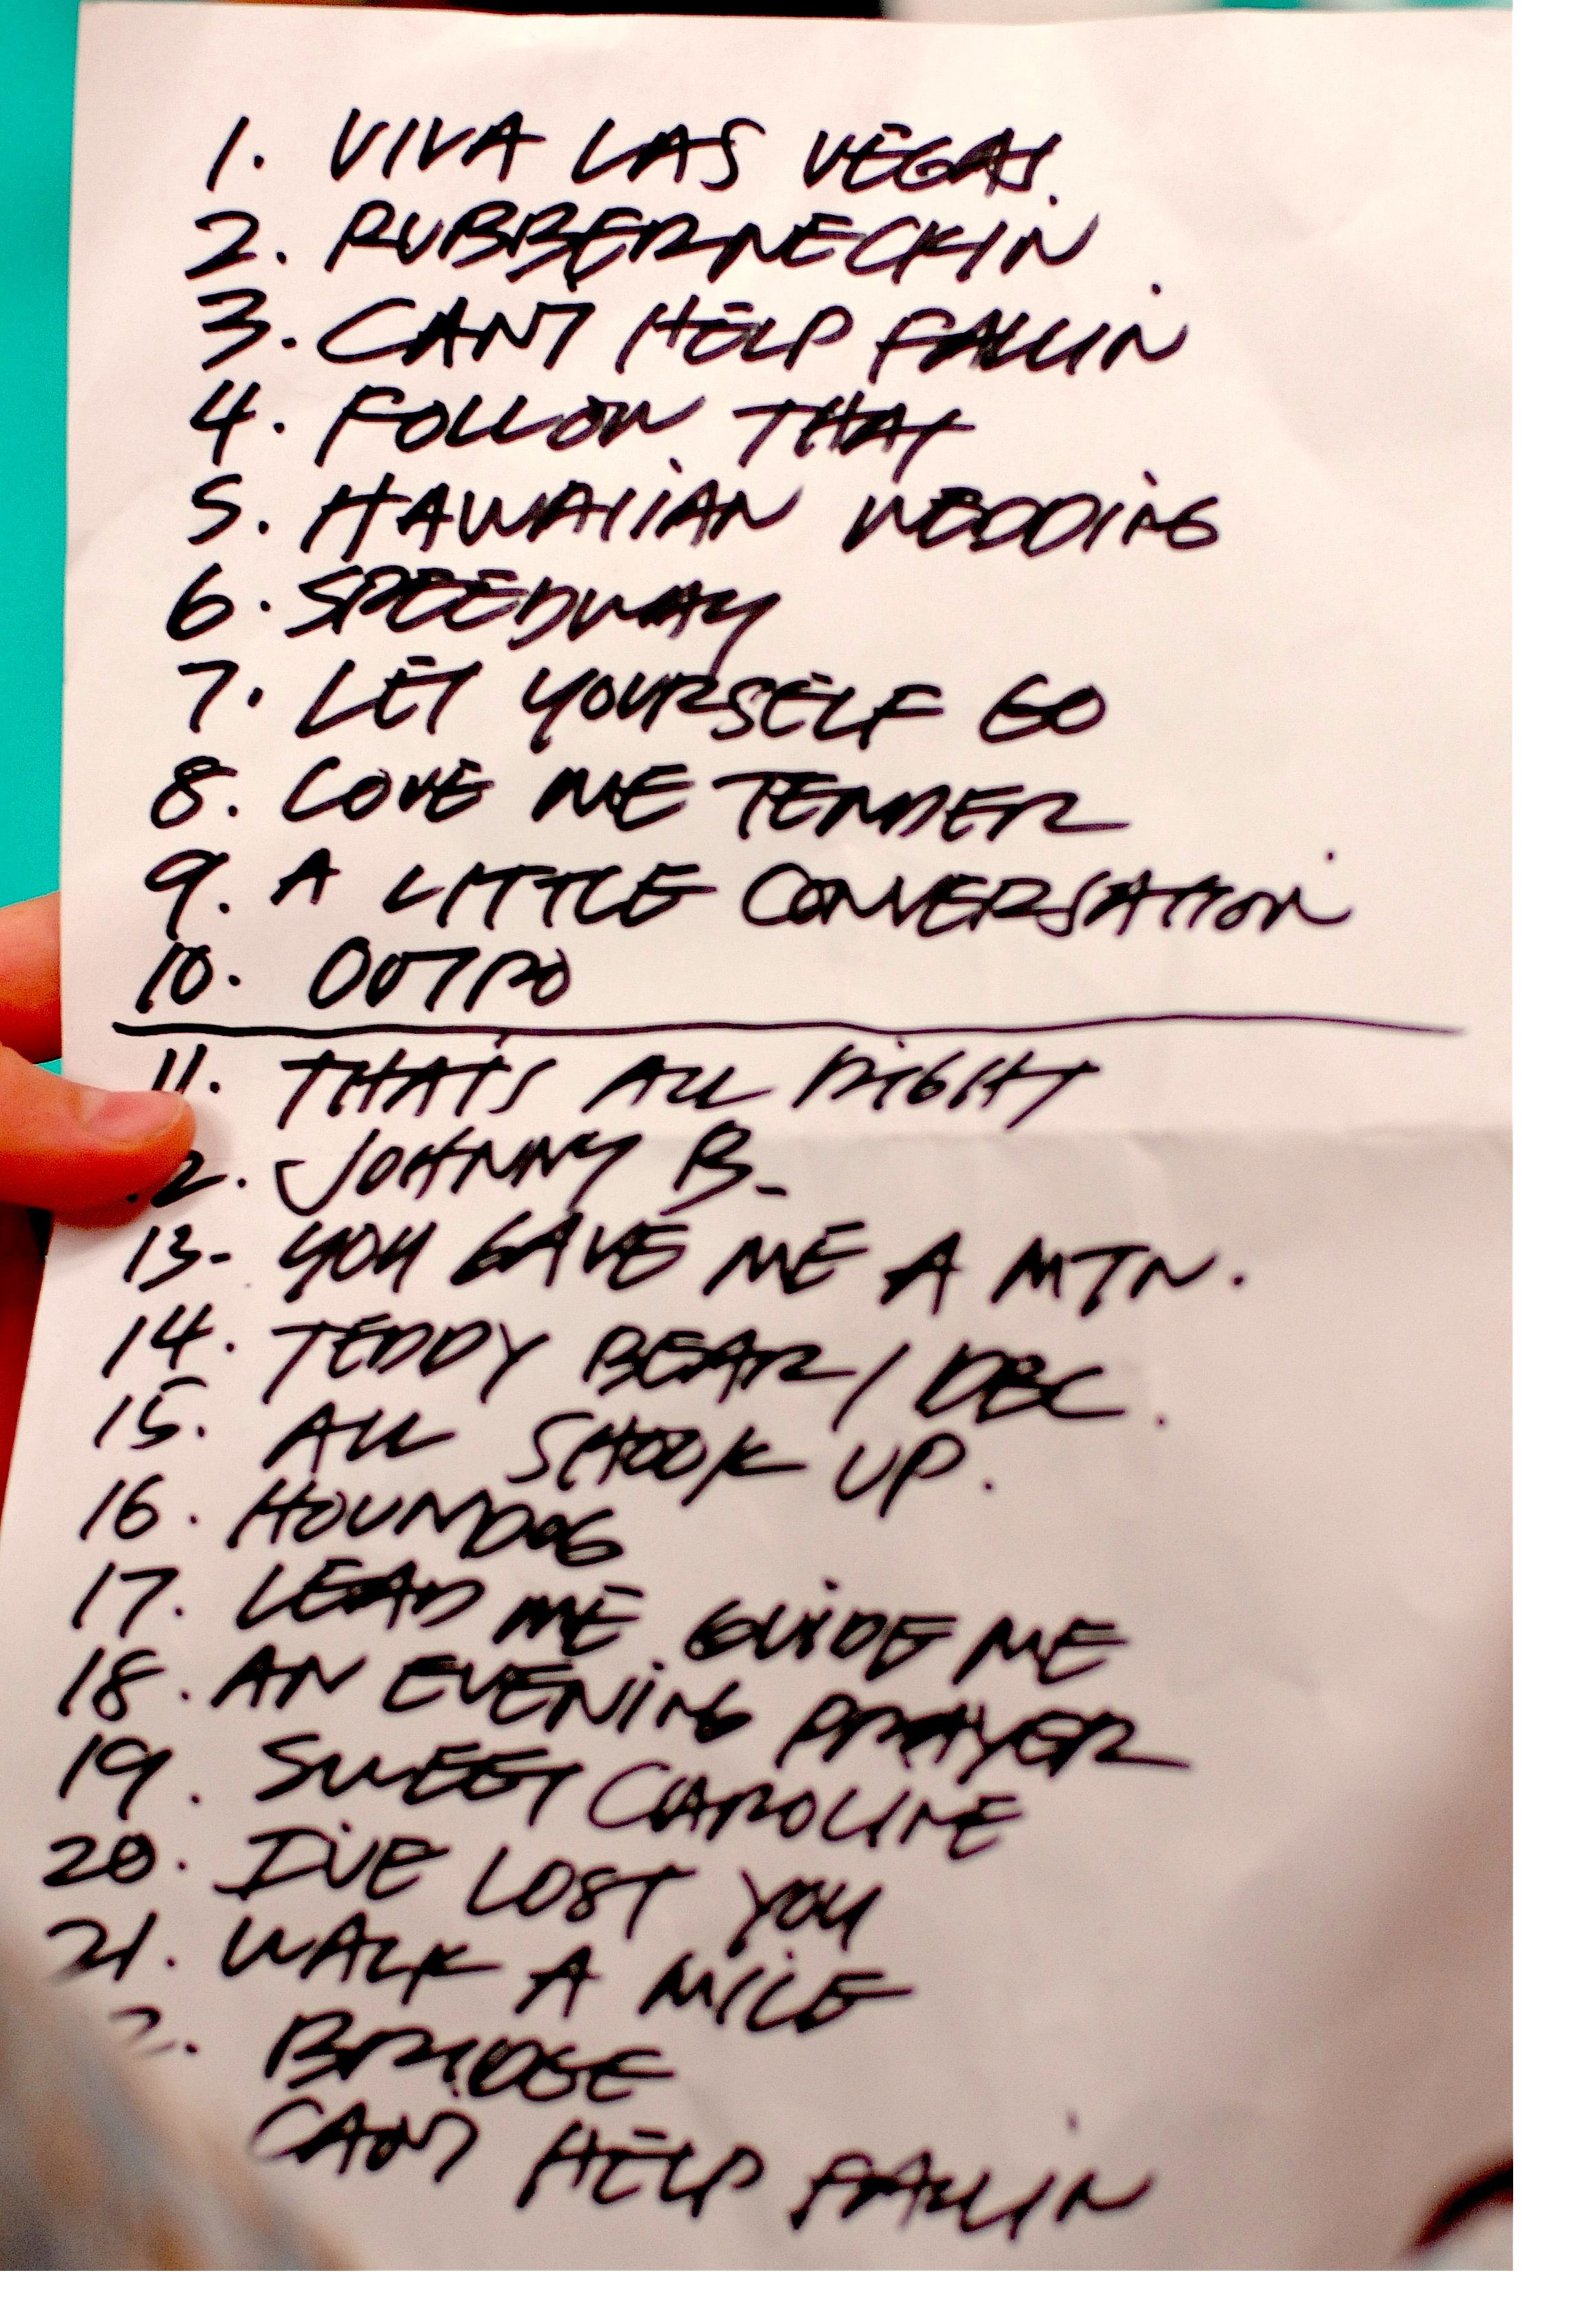 1. VIVA LAS VEGAS.
2. RUBBERNECKIN.
3. CAN'T HELP FALLIN
4. FOLLOW THAT
5. HAWAIIAN WEDDING
6. SPEEDWAY
7. LET YOURSELF GO
8. LOVE ME TENDER
9. A LITTLE CONVERSATION
10. OUTRO
11. THAT'S ALL RIGHT
2. JOHNNY B-
13- YOU GAVE ME A MTN.
14. TEDDY BEAR / DBC.
15. ALL SHOOK UP.
16. HOUNDOG
17. LEAD ME GUIDE ME
18. AN EVENING PRAYER
19. SWEET CAROLINE
20. I'VE LOST YOU
21. WALK A MILE
2. BRIDGE
CAN'T HELP FALLIN